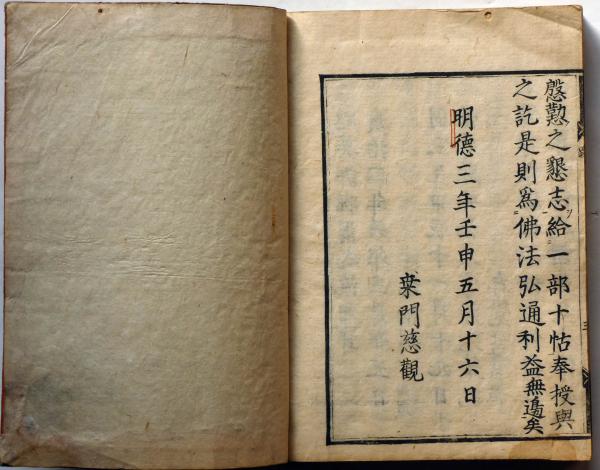 慇懃之懇志給一部十帖奉授與
之訖是則爲佛法弘通利益無邊矣
明德三年壬申五月十六日
桒門慈觀